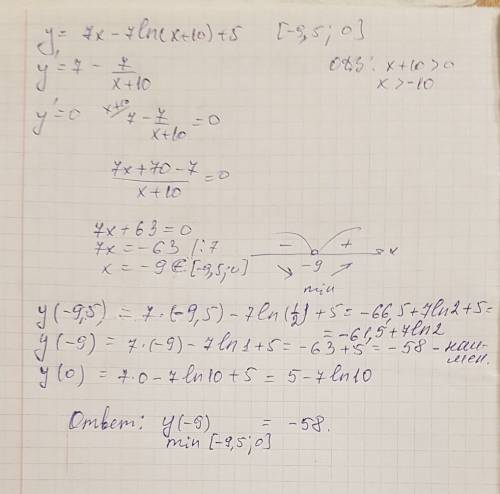 y = 7x - 7ln(x+10) + 5 [-9,5; 0]
y' = 7 - 7/(x+10) ОДЗ: x+10 > 0
x > -10
y' = 0 x+10/ 7 - 7/(x+10) = 0
(7x+70-7)/(x+10) = 0
7x + 63 = 0
7x = -63 |:7 - + x
x = -9 ∈ [-9,5; 0] ↘ -9 ↗
min
y(-9,5) = 7·(-9,5) - 7ln(1/2) + 5 = -66,5 + 7ln2 + 5 =
= -61,5 + 7ln2
y(-9) = 7·(-9) - 7ln1 + 5 = -63 + 5 = -58 - наи-
мен.
y(0) = 7·0 - 7ln10 + 5 = 5 - 7ln10
Ответ: y(-9) = -58.
min [-9,5; 0]